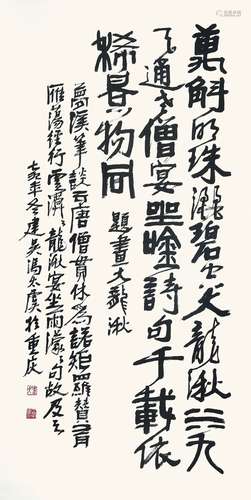 萬斛明珠灑碧空大龍湫上九
天通老僧宴坐吟詩句千載依
稀景物同
題畫大龍湫
夢溪筆談云唐僧貫休為諾矩羅贊有
雁蕩經行雲漠漠龍湫宴坐雨濛濛句故及之
年冬建吳馮太虞於重慶